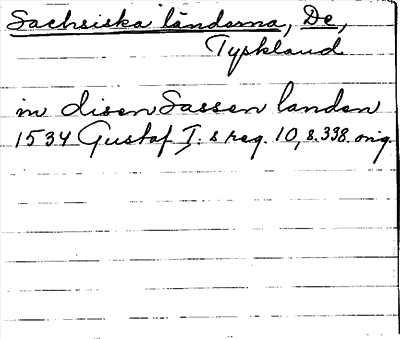 Sachsiska länderna, De,
Tyskland
in disen Sassen landen
1534 Gustaf I:s reg. 10, s. 338. orig.